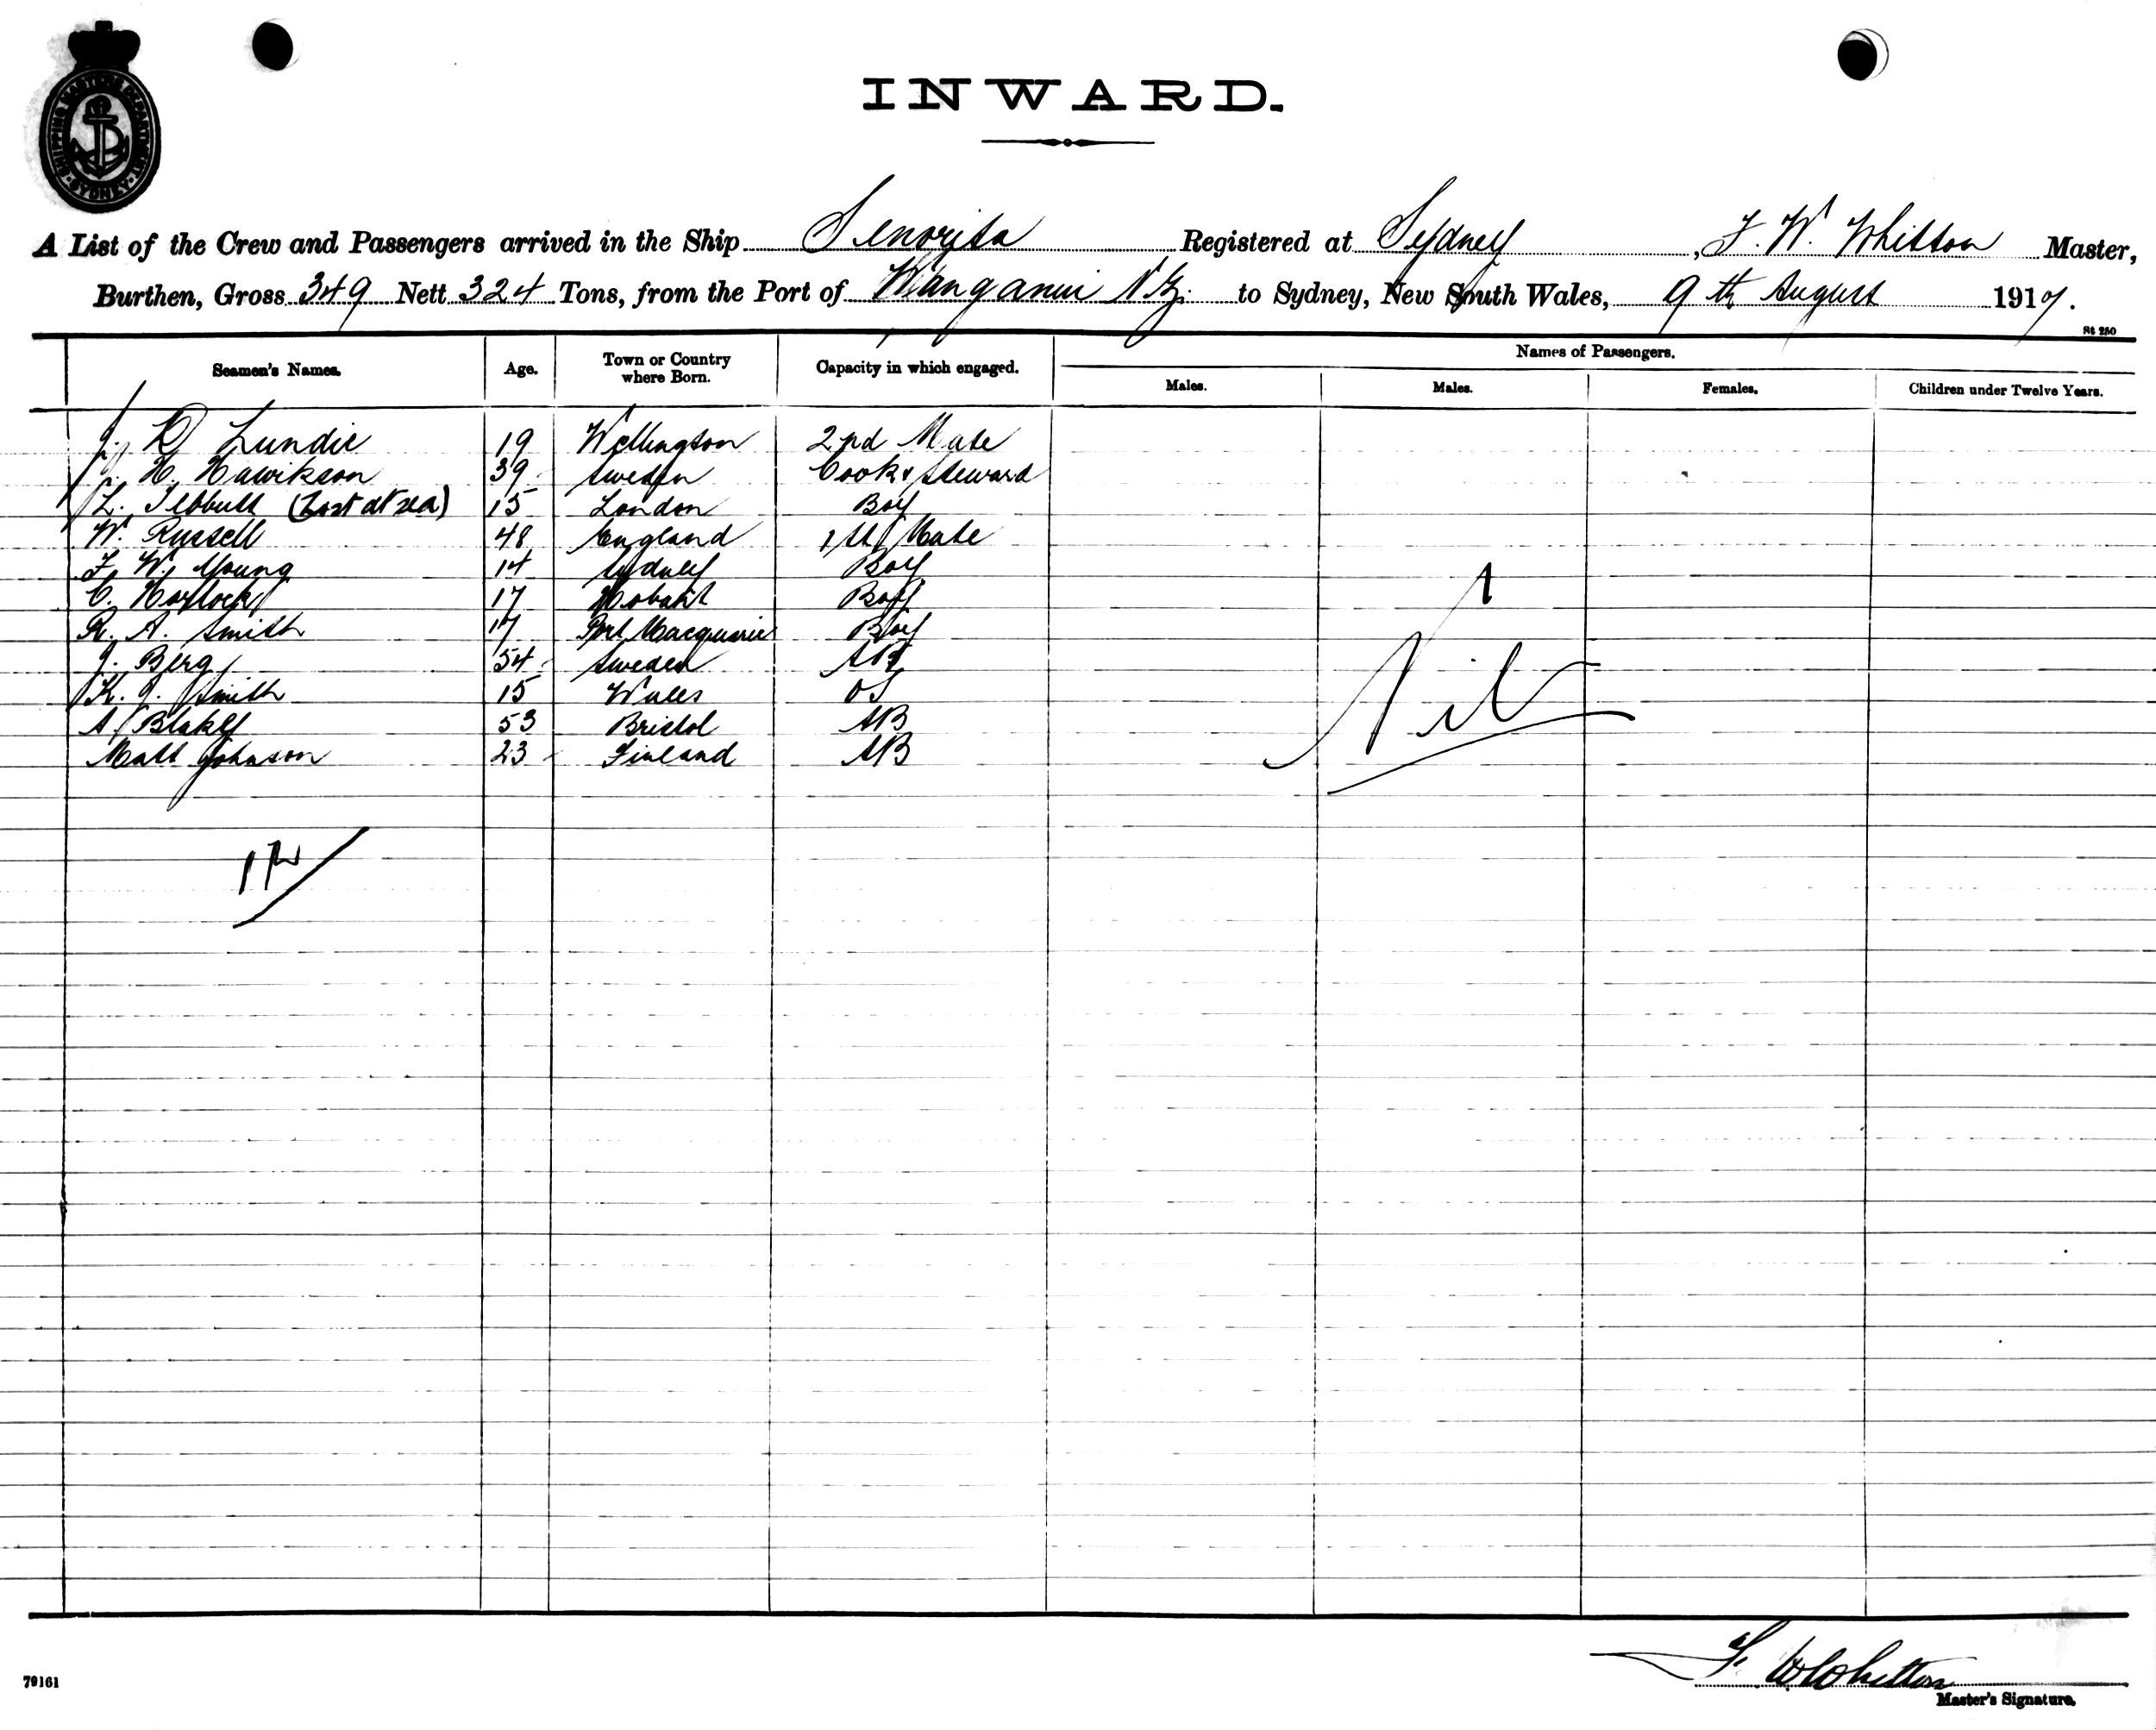 SHIPPING MASTERS DEPARTMENT SYDNEY
INWARD.
A List of the Crew and Passengers arrived in the Ship Senorita Registered at Sydney, F. W. Whitson Master,
Burthen, Gross 349 Nett 324 Tons, from the Port of Wanganui N.Z. to Sydney, New South Wales, 9th August 1917.
St 250
Seamen's Names. Age. Town or Country where Born. Capacity in which engaged. Names of Passengers.
Males. Males. Females. Children under Twelve Years.
J. D Lundie 19 Wellington 2nd Mate
H. Hawikson 39 Sweden Cook & Steward
L. Tebbutt (Lost at sea) 15 London Boy
W. Russell 48 England 1st Mate
F. W. Young 14 Sydney Boy
C. Horlock 17 Hobart Boy
R. A. Smith 17 Port Macquarie Boy
J. Berg 54 Sweden AB
K. J. Smith 15 Wales OS
A. Blakly 53 Bristol AB
Matt Johnson 23 Finland AB
Nil
12
F. W Whitton
79161
Master's Signature.